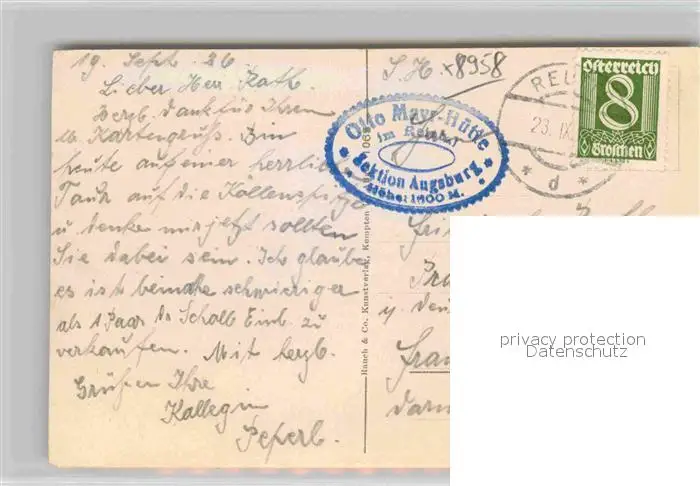 19. Sept. 26
Lieber Herr Rath.
Herzl. Dank für Ihren
lb. Kartengruß. Bin
heute auf einer herrlichen
Tour auf die Köllenspitze
u. denke mir jetzt sollten
Sie dabei sein. Ich glaube
es ist beinahe schwieriger
als 1 Paar Einl. zu
verkaufen. Mit herzl.
Grüßen Ihre
Kollegin
Peperl.
S. H. x8958
Otto Mayr-Hütte
im Reintal
Sektion Augsburg
Höhe: 1600 M.
Rauch & Co. Kunstverlag, Kempten
REU
23. IX
* d *
Österreich
8
Groschen
Fra
privacy protection
Datenschutz